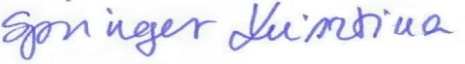 Springer Krisztina